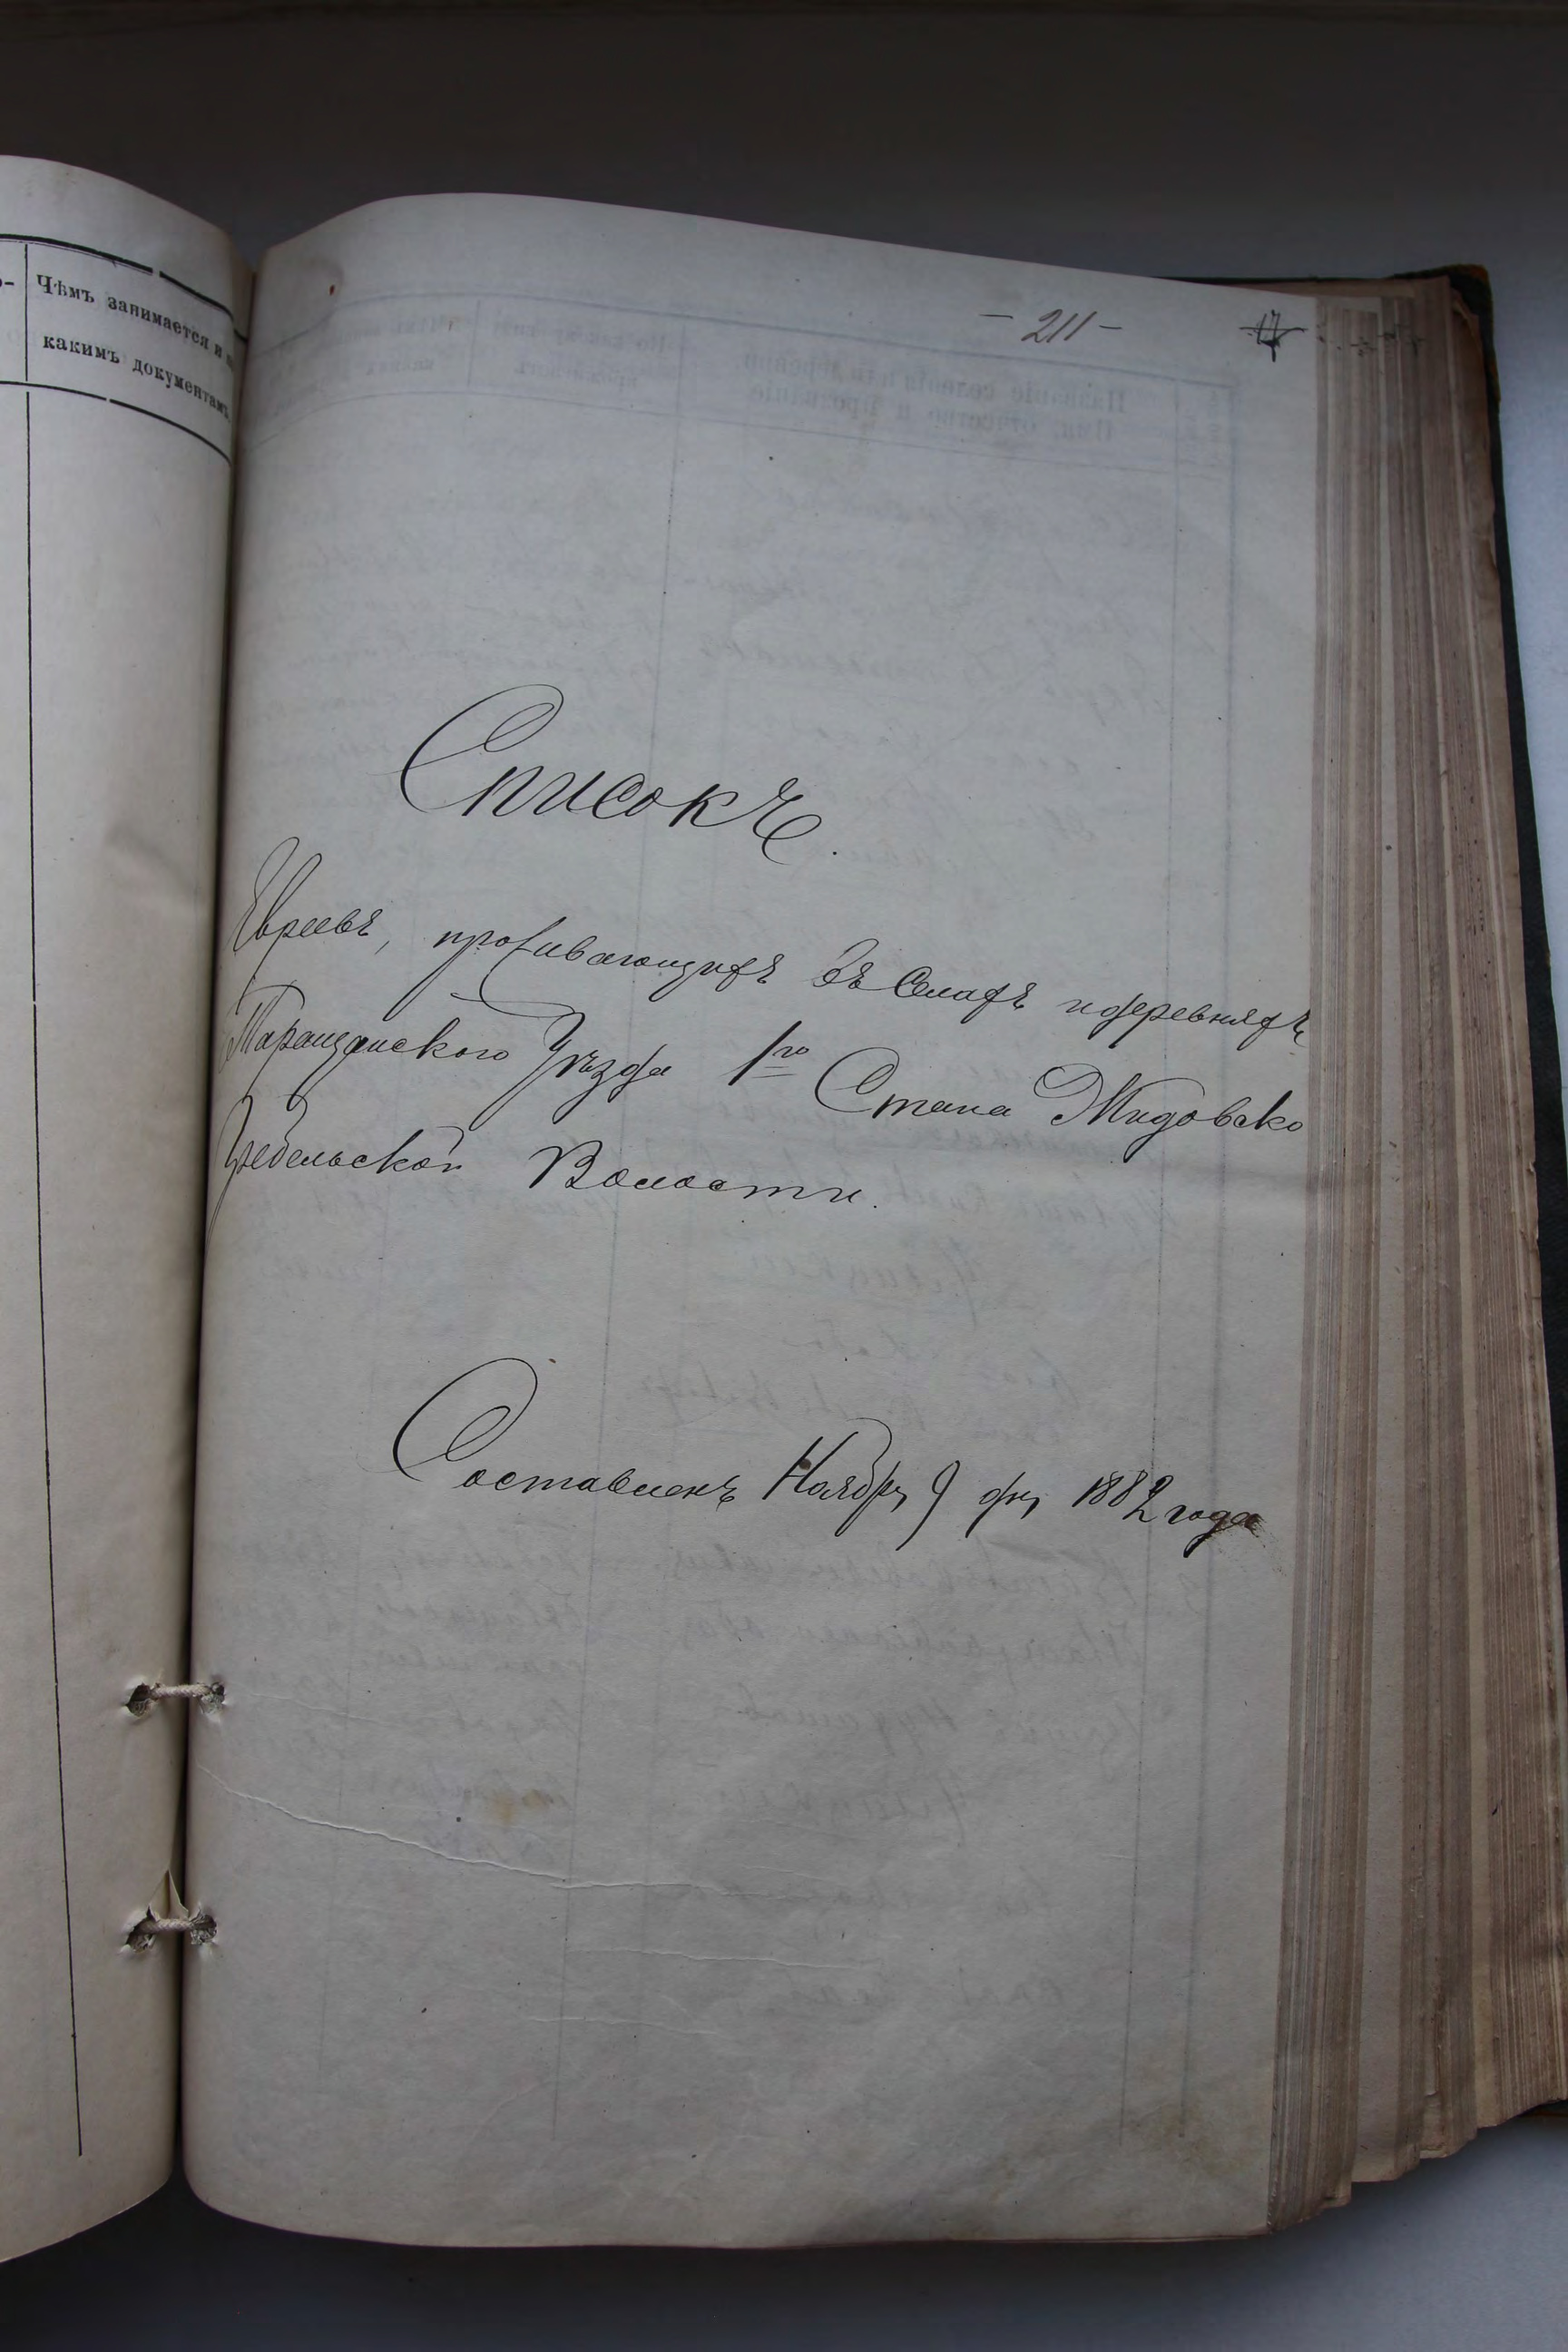 Чѣмъ занимается и
какимъ документамъ
- 211 -
17
Списокъ.
Евреевъ, проживающихъ въ Селахъ и деревняхъ
Таращанскаго Уѣзда 1го Стана Жидовско
Гребельской Волости.
Составленъ Ноября 9 дня 1882 года